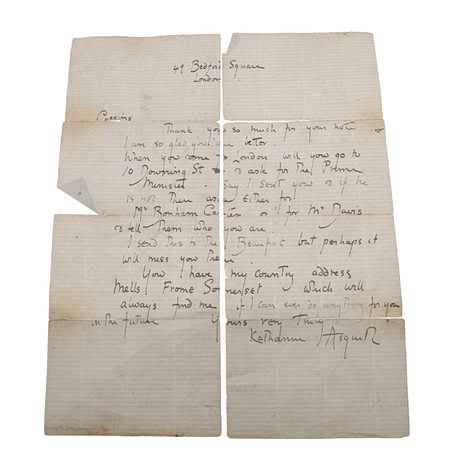 49 Bedford Square
London
Cozens
Thank you so much for your note
I am so glad you are better.
When you come to London will you go to
10 Downing St. & ask for the Prime
Minister. Say I sent you & if he
is not there ask either for
Mr Bonham Carter or for Mr Davis
& tell them who you are.
I send this to the Beaufort but perhaps it
will miss you there.
You have my country address
Mells Frome Somerset which will
always find me if I can ever do anything for you
in the future Yours very truly
Katharine Asquith